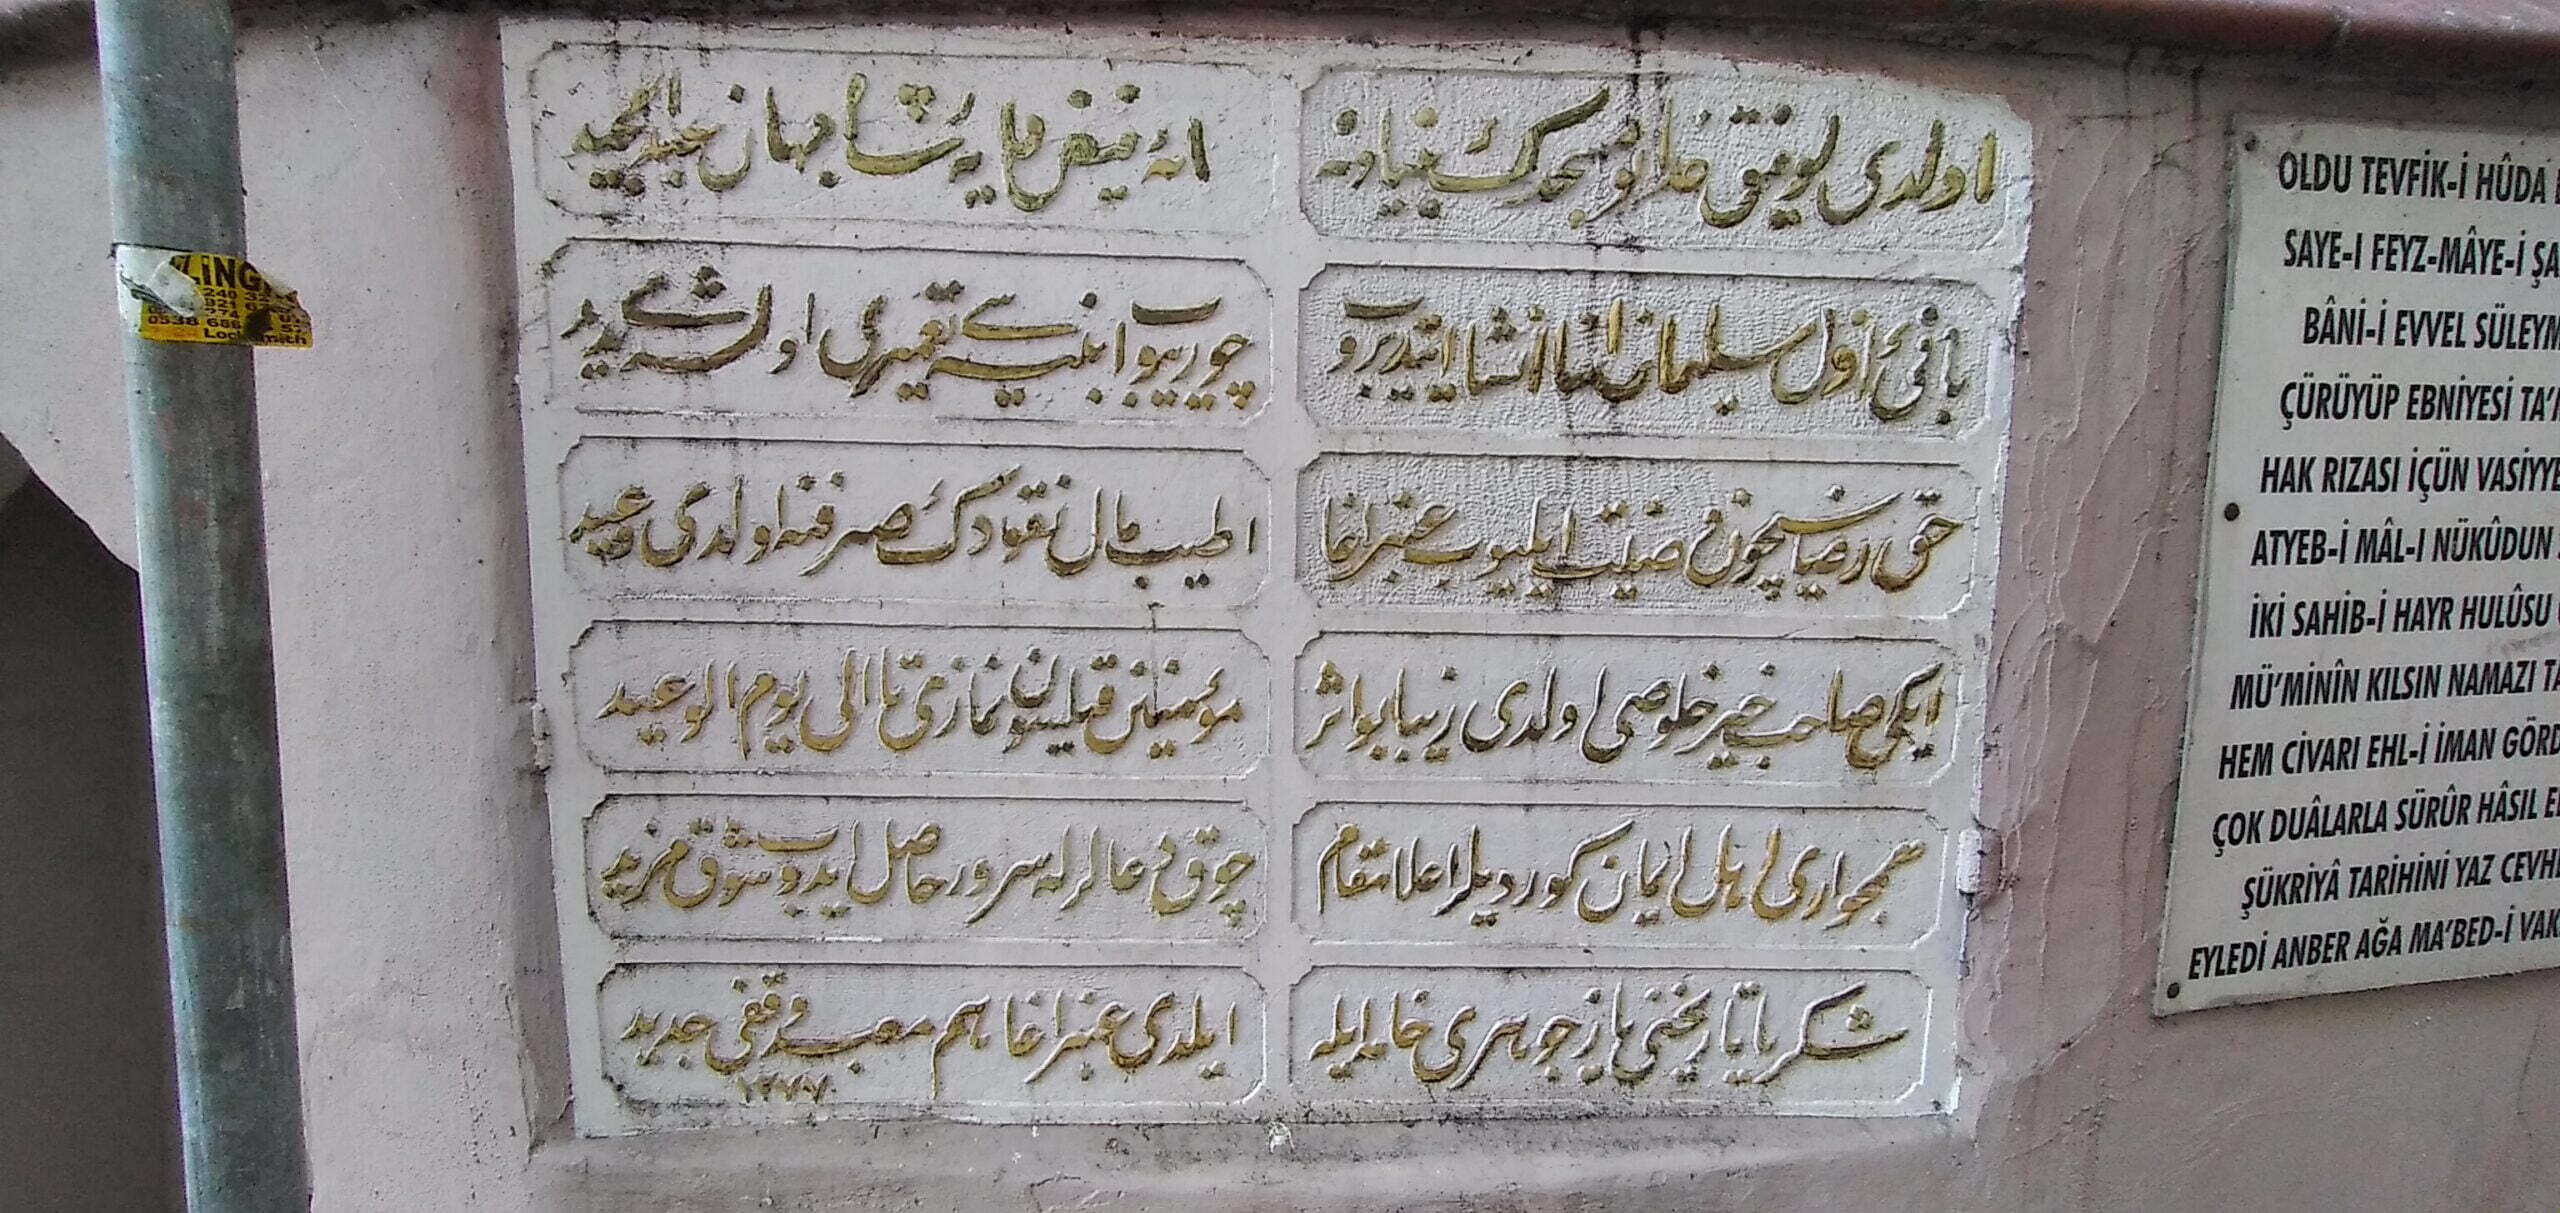 اولدی توفیق خدا بو مسجدك بنیادنه
فیض مایهٔ عبد المجید
بانئ اول سلیمان اغا انشا ایتدیروب
چوریوب ابنیه سی تعمیری
حق رضاسیچون وصیت ایلیوب عنبر اغا
اطیب مال نقودك صرفنه اولدی وعید
ایكی صاحب خیر خلوصی اولدی زیبا بو اثر
مؤمنین قیلسون نمازی تا الی یوم الوعید
همجواری اهل ایمان كوردیلر اعلا مقام
چوق دعالرله سرور حاصل ایدوب شوق مزید
شكریا تاریخنی یاز جوهری خامه ایله
ایلدی عنبر اغا هم معبد وقفی جدید
١٢٧٧
OLDU TEVFİK-İ HÛDA
SAYE-I FEYZ-MÂYE-İ ŞA
BÂNİ-İ EVVEL SÜLEYM
ÇÜRÜYÜP EBNİYESİ TA'
HAK RIZASI İÇÜN VASİYYE
ATYEB-İ MÂL-I NÜKÛDUN
İKİ SAHİB-İ HAYR HULÛSU
MÜ'MİNÎN KILSIN NAMAZI TA
HEM CİVARI EHL-İ İMAN GÖRD
ÇOK DUÂLARLA SÜRÛR HÂSIL E
ŞÜKRİYÂ TARİHİNİ YAZ CEVH
EYLEDİ ANBER AĞA MA'BED-İ VAK